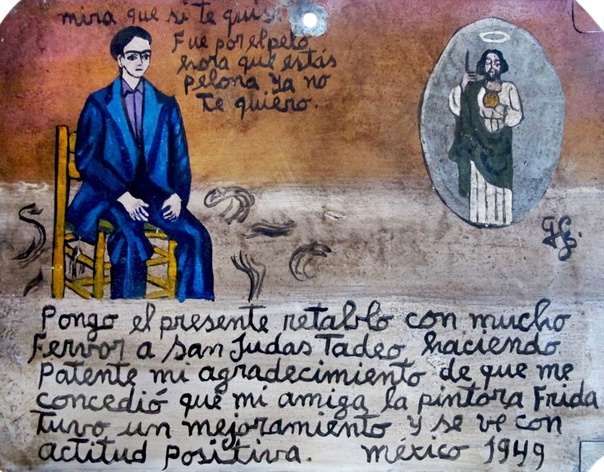 mira que si te quis
Fue por el pelo
hora que estás
pelona ya no
te quiero.
Pongo el presente retablo con mucho
Fervor a San Judas Tadeo, haciendo
Patente mi agradecimiento de que me
concedió que mi amiga la pintora Frida
tuvo un mejoramiento y se ve con
actitud positiva. México 1949